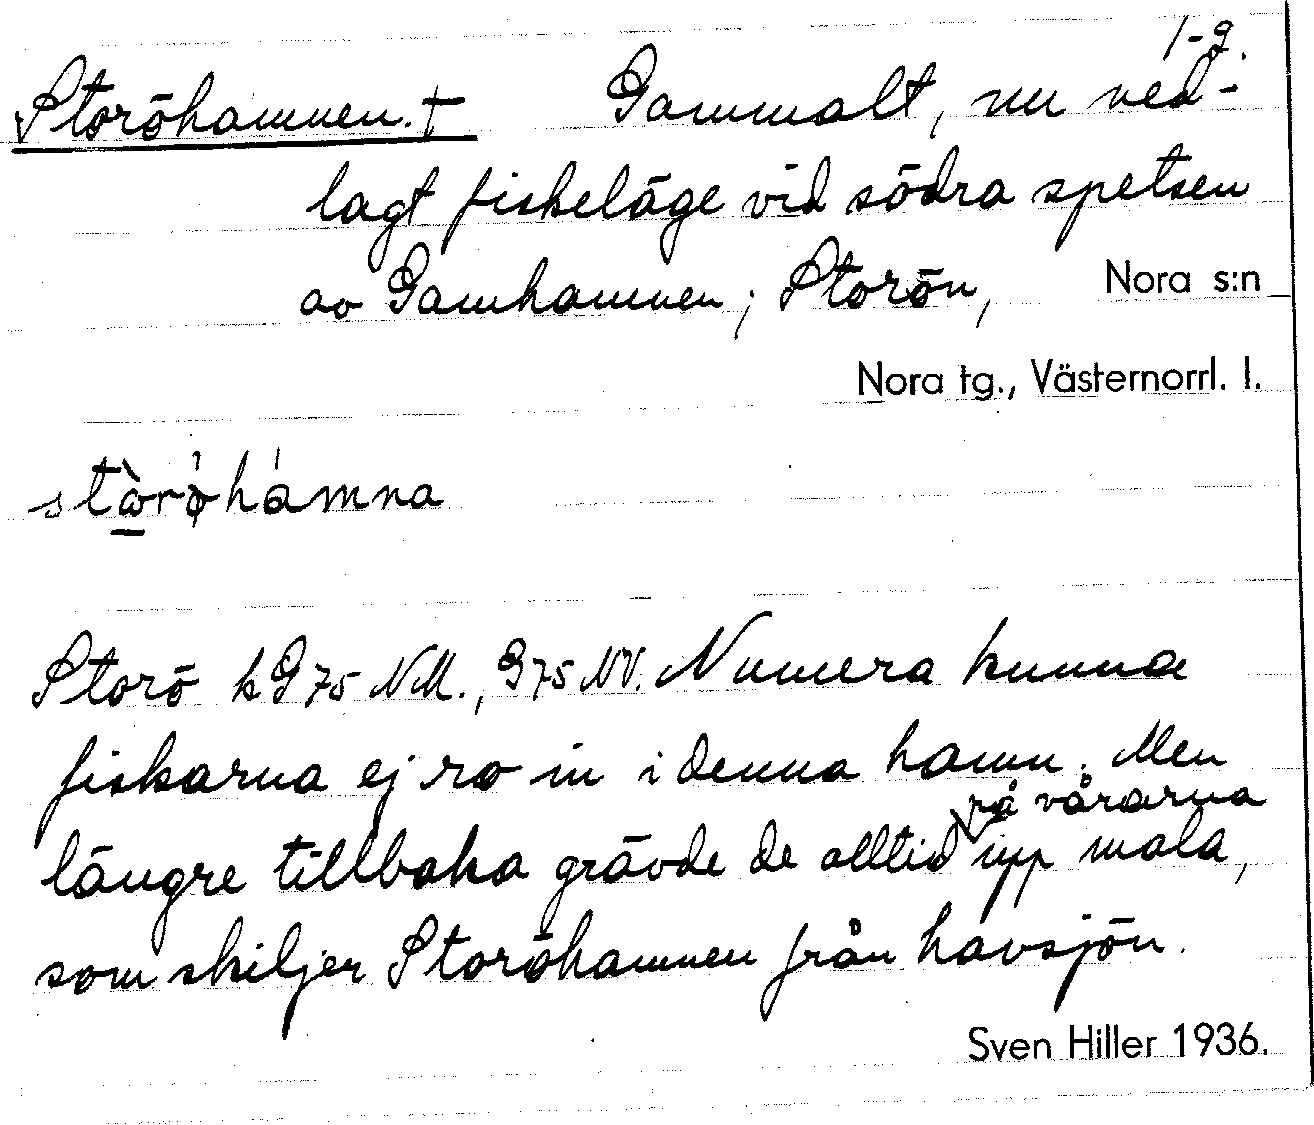 1-2.
Storöhamnen. † Gammalt, nu ned-
lagt fiskeläge vid södra spetsen
av Gamhamnen; Storön, Nora s:n
Nora tg., Västernorrl. l.
stòrø̀hámna
Storö k G 75 NM., G 75 NV. Numera kunna
fiskarna ej ro in i denna hamn. Men
längre tillbaka grävde de alltid på vårarna upp mala,
som skiljer Storöhamnen från havsjön.
Sven Hiller 1936.